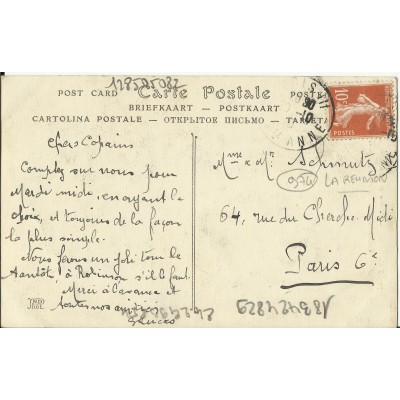 128525082
POST CARD Carte Postale POSTK
BRIEFKAART — POSTKAART
CARTOLINA POSTALE — ОТКРЫТОЕ ПИСЬМО — TARJETA
10c
POSTES
Chers Copains
Comptez sur nous pour
Mardi midi, en ayant le
choix, et toujours de la façon
la plus simple.
Nous ferons un joli tour le
tantôt à Robinson s'il le faut.
Merci à l'avance et
toutes nos amitiés
Lucas
Mme & Mr Schmutz
974 LA REUNION
64, rue du Cherche-Midi
Paris 6e
183424829